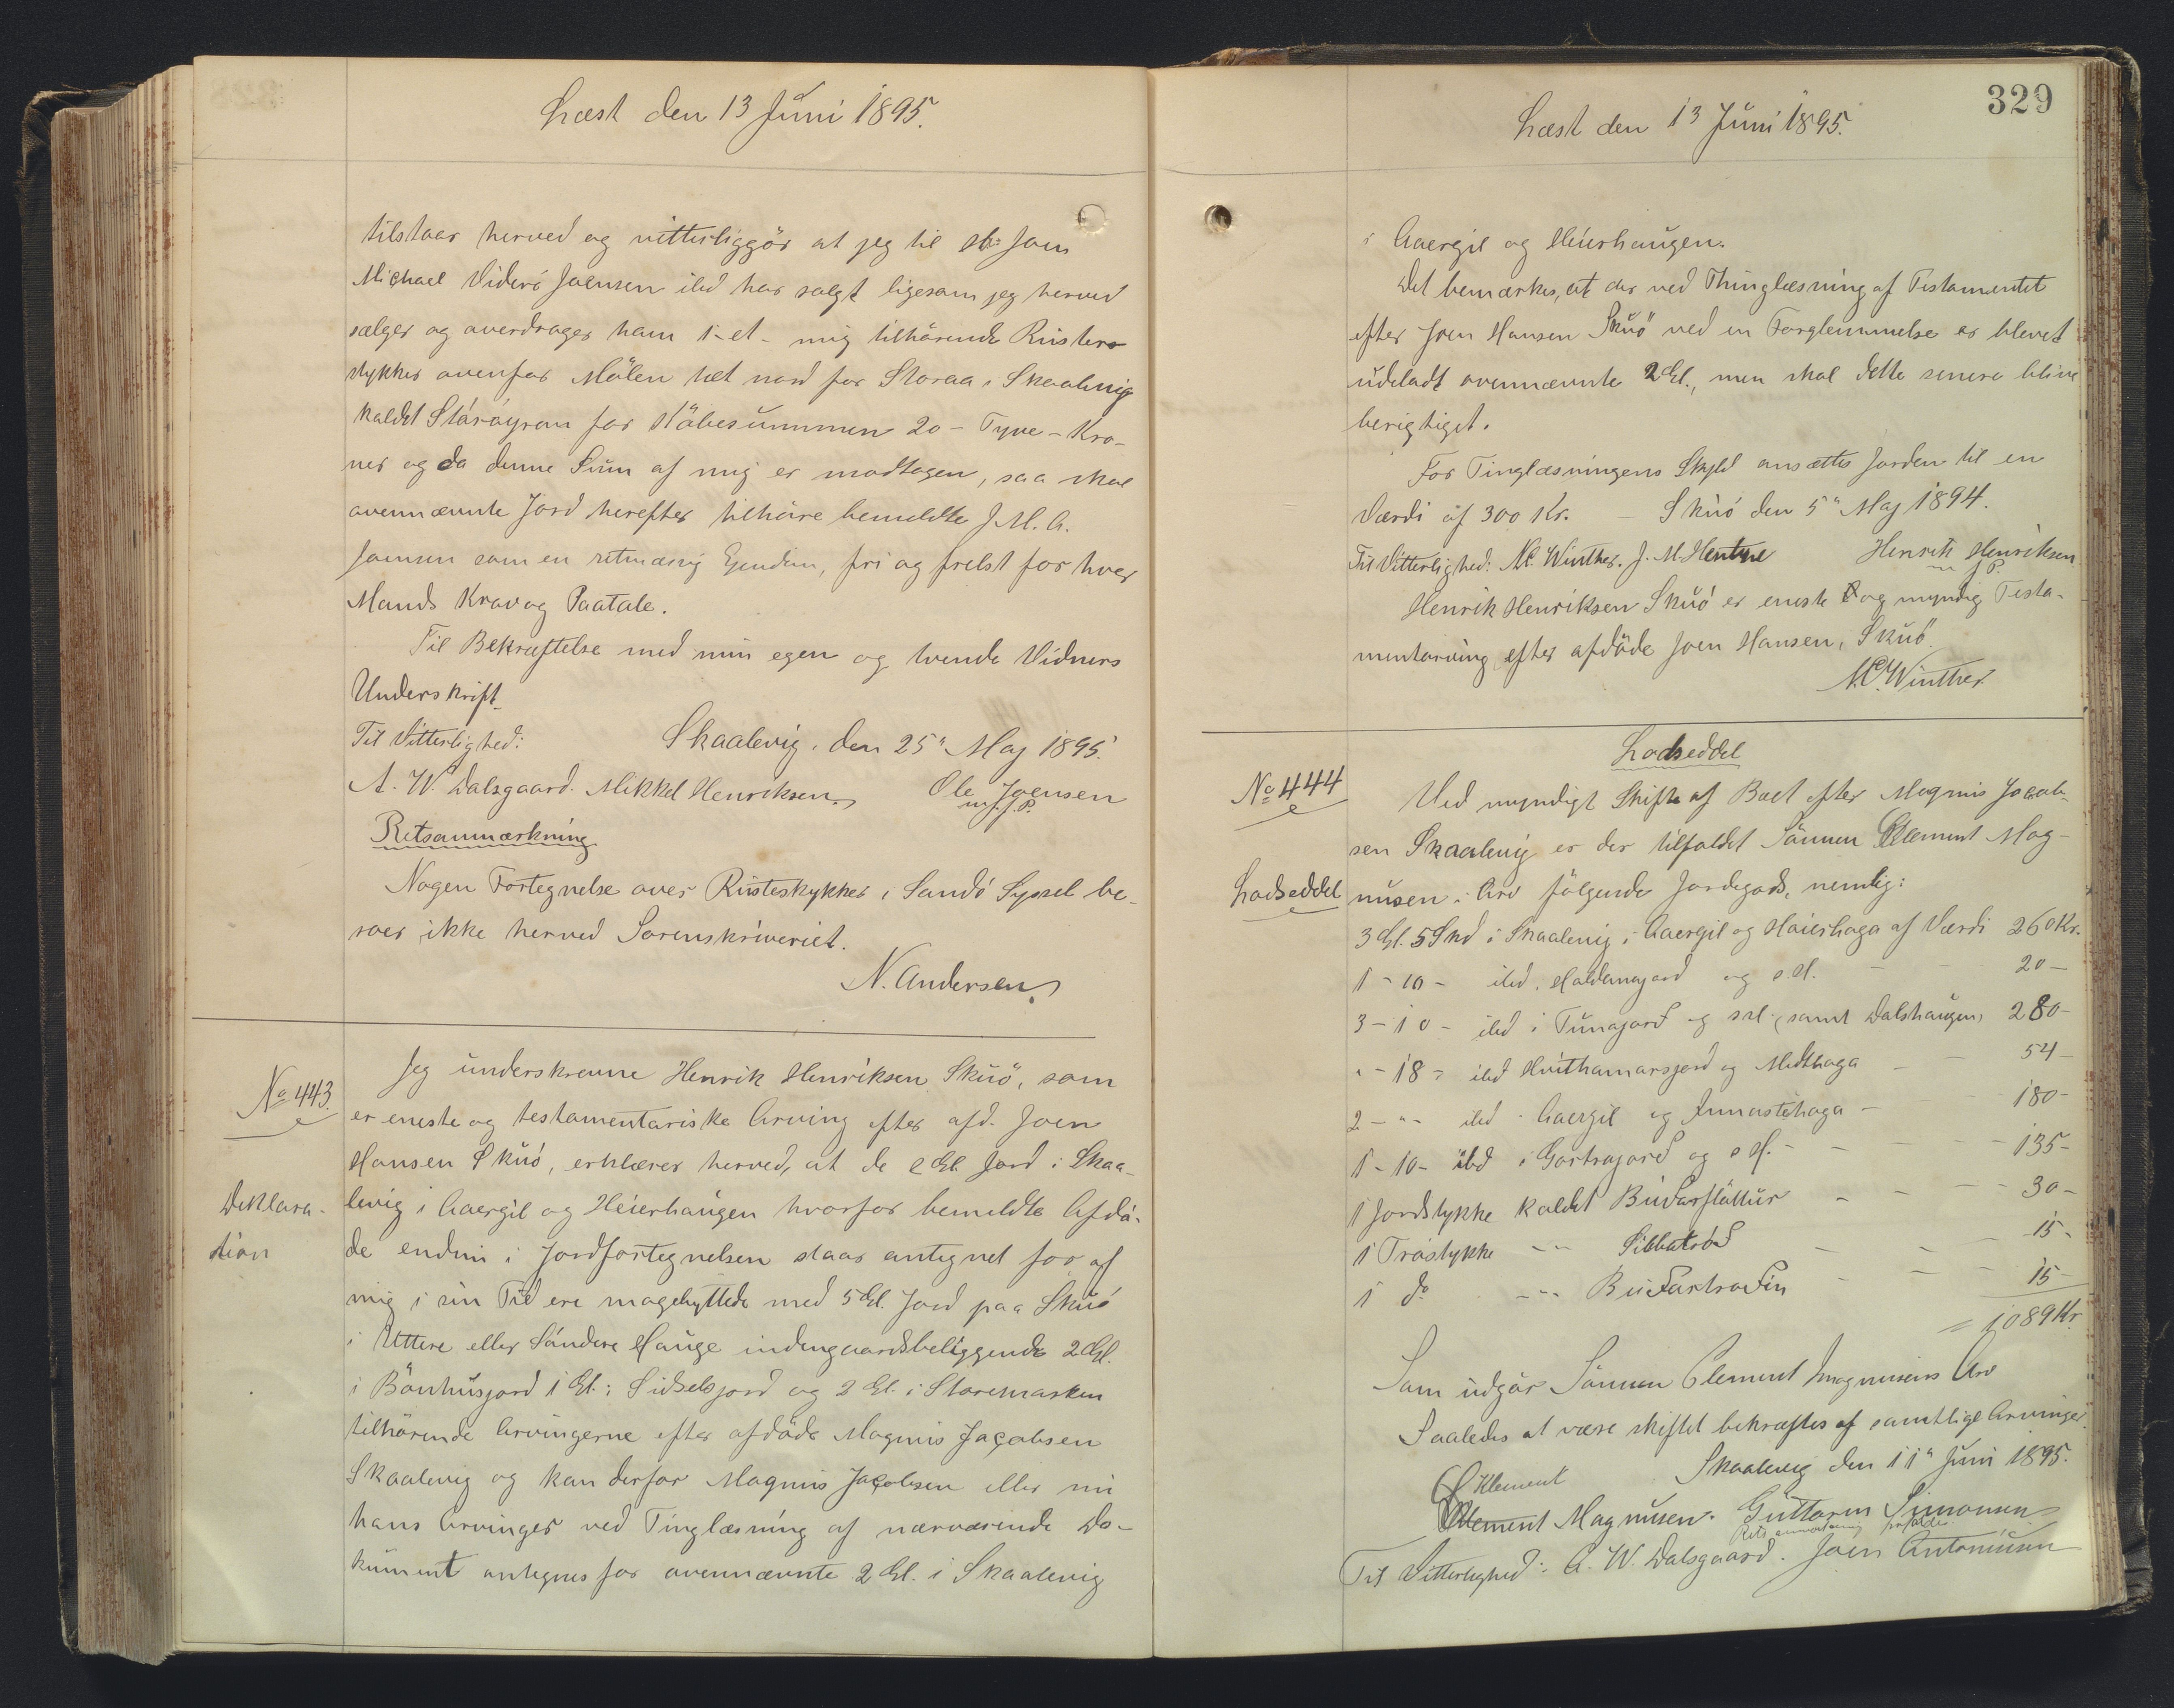 Læst den 13 Juni 1895.
tilstaar herved og vitterliggör at jeg til Joen
Michael Viderö Joensen ibd har solgt ligesom jeg herved
sælger og overdrager ham 1-et- mig tilhörende Rüster
stykker ovenfor Mölen tæt nord for Storaa i Skaalevig
kaldet Stáráyran for Köbesummen 20 - Tyve - Kro-
ner og da denne Sum af mig er modtagen, saa skal
ovennævnte Jord herefter tilhöre bemeldte J. M. V.
Joensen som en retmæssig Ejendom, fri og frelst for hver
Mands Krav og Paatale.
Til Bekræftelse med min egen og tvende Vidners
Underskrift.
Til Vitterlighed: Skaalevig, den 25" Maj 1895.
A. W. Dalsgaard. Mikkel Henriksen. Ole Joensen
m. f. P.
Retsanmærkning
Nogen Fortegnelse over Rüsteskykker i Sandö Syssel be-
roer ikke herved Sorenskriveriet.
N. Andersen
No 443.
Deklara-
tion
Jeg underskrevne Henrik Henriksen Skuö, som
er eneste og testamentariske Arving efter afd. Joen
Hansen Skuö, erklærer herved, at de 2 Gl. Jord i Skaa-
levig i Aaergil og Heierhaugen hvorfor bemeldte Afdö-
de endnu i Jordfortegnelsen staar antegnet for af
mig i sin Tid ere magebyttede med 5 Gl. Jord paa Skuö
i Uttere eller Söndere Hauge indengaardsbeliggende 2 Gl.
i Bönhusjord 1 Gl. i Sidselsjord og 2 Gl. i Storemarken
tilhörende Arvingerne efter afdöde Magnus Jacobsen
Skaalevig og kan derfor Magnus Jacobsen eller nu
hans Arvinger ved Tinglæsning af nærværende Do-
kument antegnes for ovennævnte 2 Gl. i Skaalevig
329
Læst den 13 Juni 1895.
i Aaergil og Heierhaugen.
Det bemærkes, at der ved Thinglæsning af Testamentet
efter Joen Hansen Skuö ved en Forglemmelse er blevet
udeladt ovennævnte 2 Gl., men skal dette senere blive
berigtiget.
For Tinglæsningens Skyld ansættes Jorden til en
Værdi af 300 Kr. - Skuö den 5" Maj 1894.
Til Vitterlighed: N.C. Winther. J. M. Hentze Henrik Henriksen
m f P.
Henrik Henriksen Skuö er eneste og myndig Testa-
mentarving efter afdöde Joen Hansen, Skuö.
N.C. Winther
No 444
Lodseddel
Lodseddel
Ved myndigt Skifte af Boet efter Magnus Jacob-
sen Skaalevig er der tilfaldet Sönnen Clement Mag-
nusen i Arv fölgende Jordegods, nemlig:
3 Gl. 5 Skd i Skaalevig i Aaergil og Haierhaga af Værdi 260 Kr.
1 - 10 - ibd. Haldamajord og s.H. - - 20 -
3 - 10 - ibd i Tunajord og s.H. (samt Dalshaugen) 280 -
" - 18 - ibd Hvithamarsjord og Medthaga - 54 -
2 - " - ibd - Aaergil og Innastihaga - - 180 -
1 - 10 - ibd i Gartrajord og s.H. - - - - 135 -
1 Jordstykke kaldet Búðarfláttur - - - 30 -
1 Tröstykke - " - Sibbatröd - - - 15 -
1 do - " - Búðartroðin - - - 15 -
= 1089 Kr.
Som udgör Sönnen Clement Magnusens Arv
Saaledes at være skiftet bekræftes af samtlige Arvinger.
Skaalevig den 11" Juni 1895.
Klement
Clement Magnusen. Guttorm Simonsen
Rets anmærkning
Til Vitterlighed: A. W. Dalsgaard. Joen Antoniusen